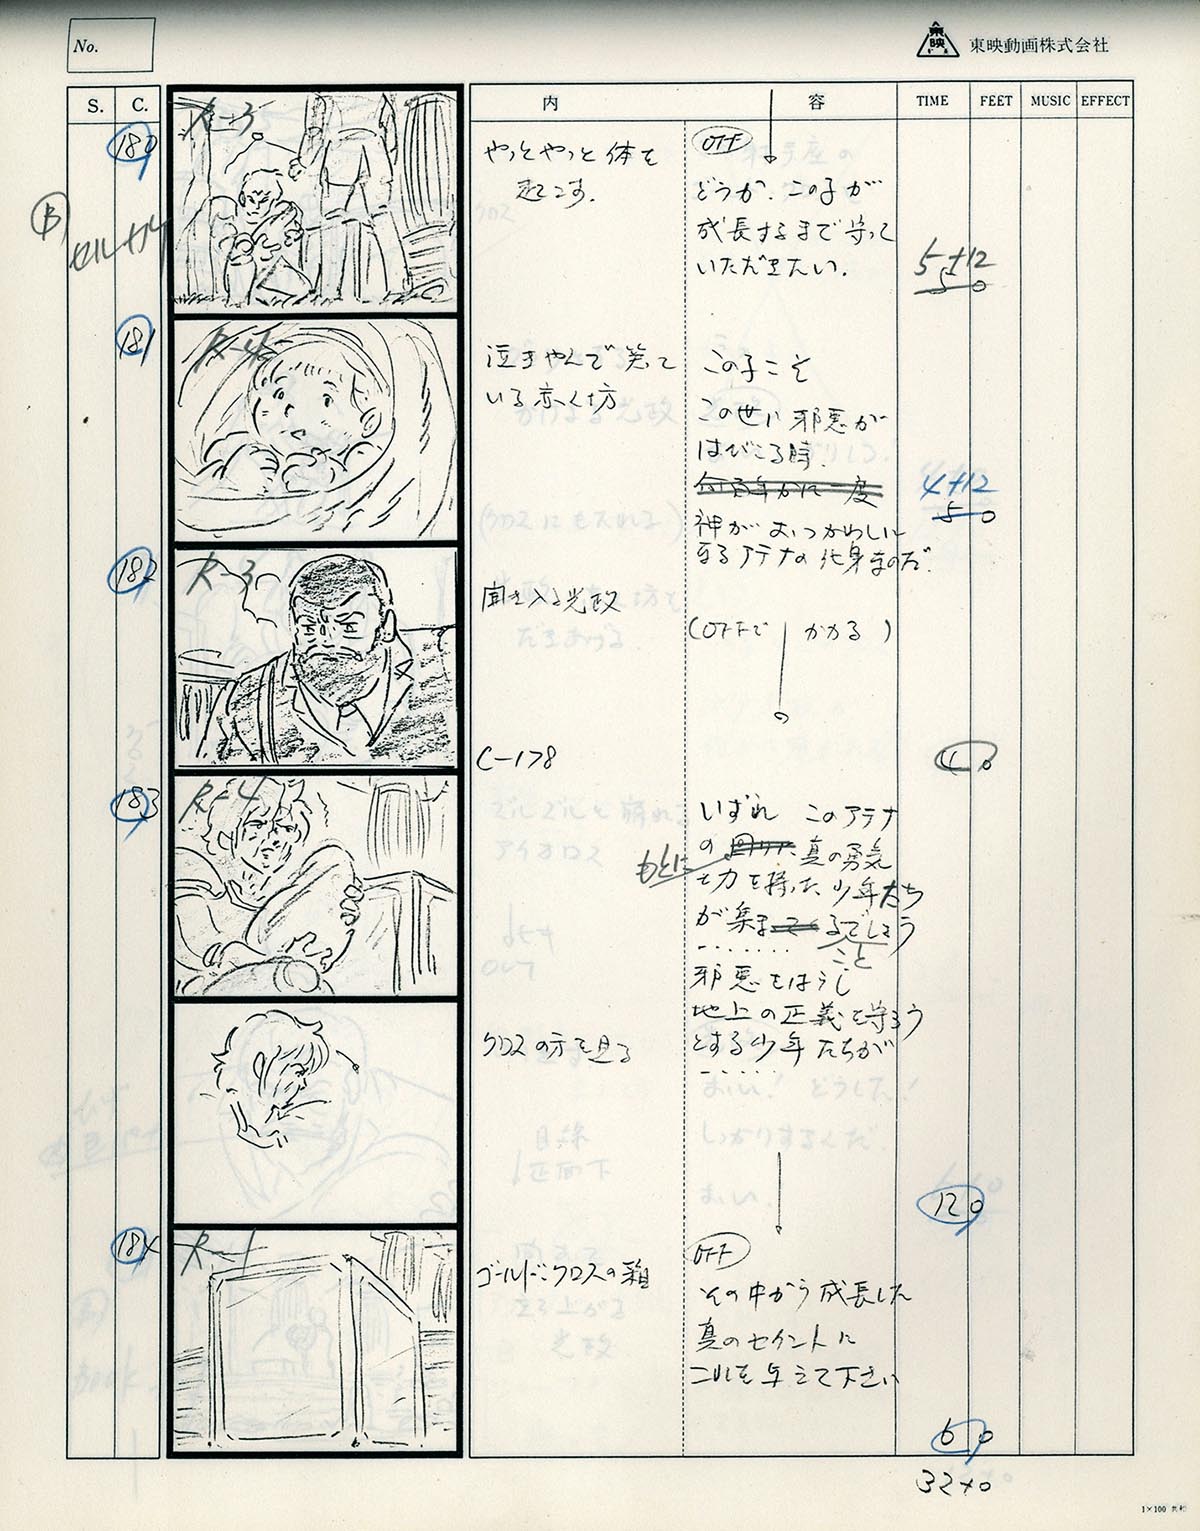 No.
東映
東映動画株式会社
S. C. 内 容 TIME FEET MUSIC EFFECT
180
R-3
やっとやっと体を
起こす.
OFF
どうか、この子が
成長するまで守って
いただきたい.
5+12
5 0
B
セルナメ
181
R-4
泣きやんで笑って
いる赤ん坊
この子こそ
この世に邪悪が
はびこる時.
何百年かに一度
神がおつかわしに
なるアテナの化身なのだ.
4+12
5 0
182
R-3
聞き入る光政
(OFFで かかる)
C-178
4 0
183
R-4
いずれ このアテナ
の もとに 真の勇気
と力を持った少年たち
が集まるでしょう
こと
‥‥‥
邪悪をほろぼし
地上の正義を守ろう
とする少年たちが
‥‥‥
クロスの方を見る
12 0
184
R-1
ゴールドクロスの箱
OFF
その中から成長した
真のセイントに
これを与えて下さい
6 0
32+0
1×100 共和